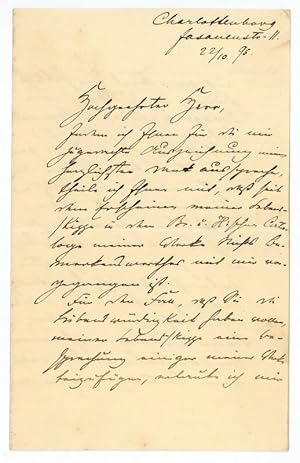 Charlottenburg
Fasanenstr. 11.
22/10 95.
Hochgeehrter Herr,
Indem ich Ihnen für die mir
zugedachte Auszeichnung meinen
herzlichsten Dank ausspreche,
theile ich Ihnen mit, daß seit
dem Erscheinen meiner Lebens-
skizze in dem Br. u. H'schen Cata-
loge meiner Werke Nichts be-
merkenswerthes mit mir vor-
gegangen ist.
Für den Fall, daß Sie die
Liebenswürdigkeit haben wollen,
meiner Lebensskizze eine Be-
sprechung einiger meiner Werke
beizufügen, erlaube ich mir